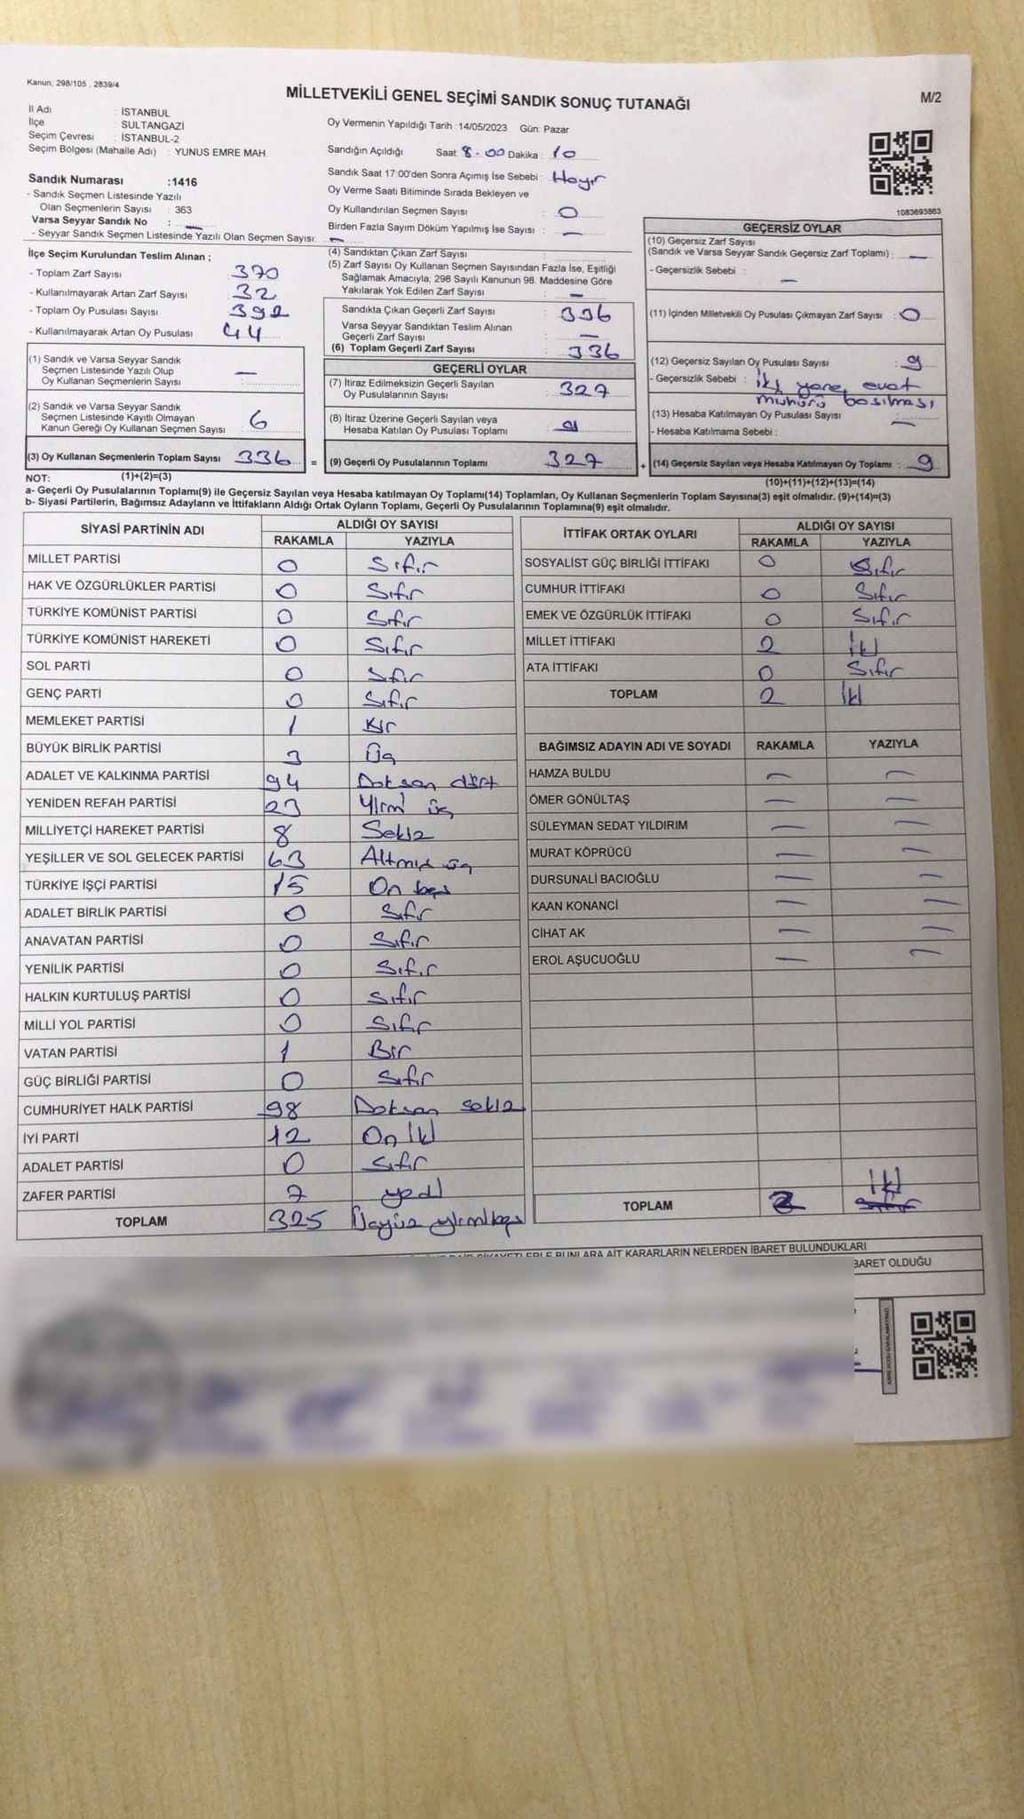 Kanun; 298/105 , 2839/4
MİLLETVEKİLİ GENEL SEÇİMİ SANDIK SONUÇ TUTANAĞI
M/2
İl Adı : İSTANBUL
İlçe : SULTANGAZİ
Seçim Çevresi : İSTANBUL-2
Seçim Bölgesi (Mahalle Adı) : YUNUS EMRE MAH.
Oy Vermenin Yapıldığı Tarih : 14/05/2023 Gün: Pazar
Sandığın Açıldığı Saat 8.00 Dakika : 10
Sandık Saat 17:00'den Sonra Açımış İse Sebebi : Hayır
Oy Verme Saati Bitiminde Sırada Bekleyen ve
Oy Kullandırılan Seçmen Sayısı : 0
Birden Fazla Sayım Döküm Yapılmış İse Sayısı : —
Sandık Numarası :1416
- Sandık Seçmen Listesinde Yazılı
Olan Seçmenlerin Sayısı : 363
Varsa Seyyar Sandık No : —
- Seyyar Sandık Seçmen Listesinde Yazılı Olan Seçmen Sayısı: —
1083693863
İlçe Seçim Kurulundan Teslim Alınan ;
- Toplam Zarf Sayısı 370
- Kullanılmayarak Artan Zarf Sayısı 32
- Toplam Oy Pusulası Sayısı 392
- Kullanılmayarak Artan Oy Pusulası 44
(1) Sandık ve Varsa Seyyar Sandık
Seçmen Listesinde Yazılı Olup
Oy Kullanan Seçmenlerin Sayısı : —
(2) Sandık ve Varsa Seyyar Sandık
Seçmen Listesinde Kayıtlı Olmayan
Kanun Gereği Oy Kullanan Seçmen Sayısı 6
(3) Oy Kullanan Seçmenlerin Toplam Sayısı 336 =
(1)+(2)=(3)
(4) Sandıktan Çıkan Zarf Sayısı
(5) Zarf Sayısı Oy Kullanan Seçmen Sayısından Fazla İse, Eşitliği
Sağlamak Amacıyla; 298 Sayılı Kanunun 98. Maddesine Göre
Yakılarak Yok Edilen Zarf Sayısı : —
Sandıkta Çıkan Geçerli Zarf Sayısı 336
Varsa Seyyar Sandıktan Teslim Alınan
Geçerli Zarf Sayısı : —
(6) Toplam Geçerli Zarf Sayısı 336
GEÇERLİ OYLAR
(7) İtiraz Edilmeksizin Geçerli Sayılan
Oy Pusulalarının Sayısı : 327
(8) İtiraz Üzerine Geçerli Sayılan veya
Hesaba Katılan Oy Pusulası Toplamı
(9) Geçerli Oy Pusulalarının Toplamı 327 +
GEÇERSİZ OYLAR
(10) Geçersiz Zarf Sayısı
(Sandık ve Varsa Seyyar Sandık Geçersiz Zarf Toplamı) : —
- Geçersizlik Sebebi : —
(11) İçinden Milletvekili Oy Pusulası Çıkmayan Zarf Sayısı : 0
(12) Geçersiz Sayılan Oy Pusulası Sayısı : 9
- Geçersizlik Sebebi : İki yere evet
mühürü basılması
(13) Hesaba Katılmayan Oy Pusulası Sayısı : —
- Hesaba Katılmama Sebebi :
(14) Geçersiz Sayılan veya Hesaba Katılmayan Oy Toplamı : 9
(10)+(11)+(12)+(13)=(14)
NOT:
a- Geçerli Oy Pusulalarının Toplamı(9) ile Geçersiz Sayılan veya Hesaba katılmayan Oy Toplamı(14) Toplamları, Oy Kullanan Seçmenlerin Toplam Sayısına(3) eşit olmalıdır. (9)+(14)=(3)
b- Siyasi Partilerin, Bağımsız Adayların ve İttifakların Aldığı Ortak Oyların Toplamı, Geçerli Oy Pusulalarının Toplamına(9) eşit olmalıdır.
SİYASİ PARTİNİN ADI ALDIĞI OY SAYISI
RAKAMLA YAZIYLA
MİLLET PARTİSİ 0 Sıfır
HAK VE ÖZGÜRLÜKLER PARTİSİ 0 Sıfır
TÜRKİYE KOMÜNİST PARTİSİ 0 Sıfır
TÜRKİYE KOMÜNİST HAREKETİ 0 Sıfır
SOL PARTİ 0 Sıfır
GENÇ PARTİ 0 Sıfır
MEMLEKET PARTİSİ 1 Bir
BÜYÜK BİRLİK PARTİSİ 3 Üç
ADALET VE KALKINMA PARTİSİ 94 Doksan dört
YENİDEN REFAH PARTİSİ 23 Yirmi üç
MİLLİYETÇİ HAREKET PARTİSİ 8 Sekiz
YEŞİLLER VE SOL GELECEK PARTİSİ 63 Altmış üç
TÜRKİYE İŞÇİ PARTİSİ 15 On beş
ADALET BİRLİK PARTİSİ 0 Sıfır
ANAVATAN PARTİSİ 0 Sıfır
YENİLİK PARTİSİ 0 Sıfır
HALKIN KURTULUŞ PARTİSİ 0 Sıfır
MİLLİ YOL PARTİSİ 0 Sıfır
VATAN PARTİSİ 1 Bir
GÜÇ BİRLİĞİ PARTİSİ 0 Sıfır
CUMHURİYET HALK PARTİSİ 98 Doksan sekiz
İYİ PARTİ 12 On İki
ADALET PARTİSİ 0 Sıfır
ZAFER PARTİSİ 7 yedi
TOPLAM 325 Üçyüz yirmibeş
İTTİFAK ORTAK OYLARI ALDIĞI OY SAYISI
RAKAMLA YAZIYLA
SOSYALİST GÜÇ BİRLİĞİ İTTİFAKI 0 Sıfır
CUMHUR İTTİFAKI 0 Sıfır
EMEK VE ÖZGÜRLÜK İTTİFAKI 0 Sıfır
MİLLET İTTİFAKI 2 İki
ATA İTTİFAKI 0 Sıfır
TOPLAM 2 İki
BAĞIMSIZ ADAYIN ADI VE SOYADI RAKAMLA YAZIYLA
HAMZA BULDU — —
ÖMER GÖNÜLTAŞ — —
SÜLEYMAN SEDAT YILDIRIM — —
MURAT KÖPRÜCÜ — —
DURSUNALİ BACIOĞLU — —
KAAN KONANCİ — —
CİHAT AK — —
EROL AŞUCUOĞLU — —
TOPLAM 2 İki
AİT KARARLARIN NELERDEN İBARET BULUNDUKLARI
BARET OLDUĞU